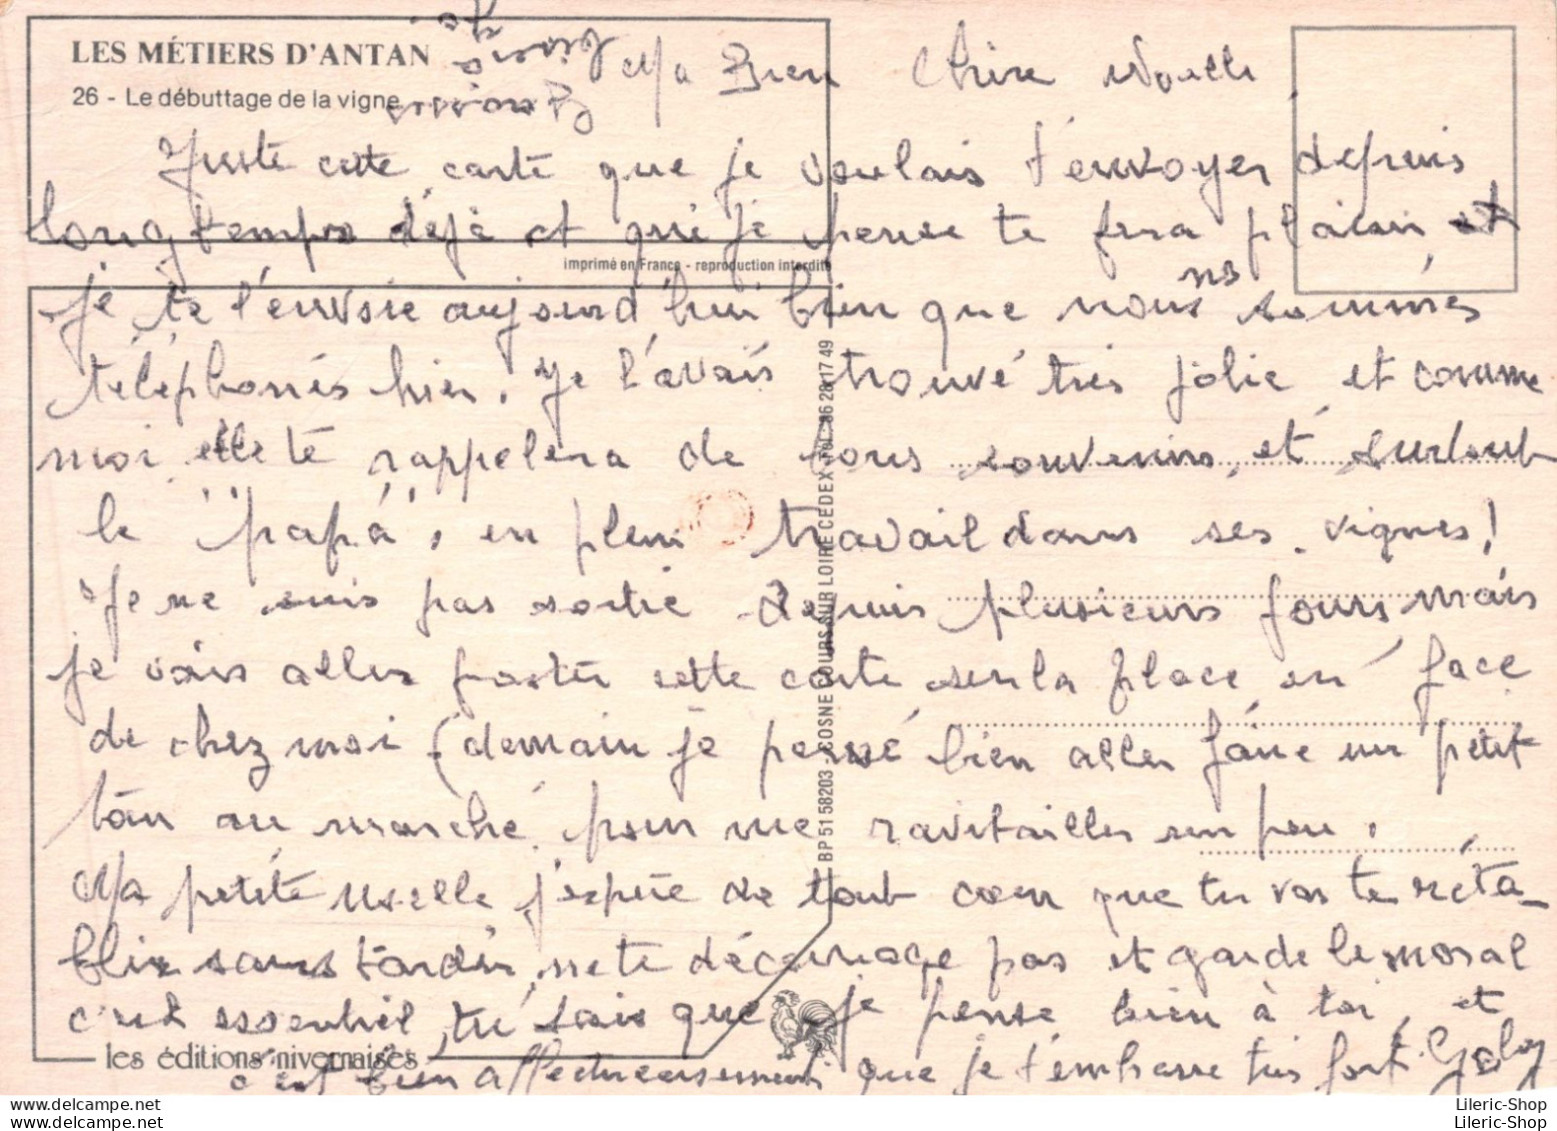 LES MÉTIERS D'ANTAN
26 - Le débuttage de la vigne
Ma Bien Chère Noelle
Juste cette carte que je voulais t'envoyer depuis
longtemps déjà et qui je pense te fera plaisir, et
imprimé en France - reproduction interdite
je te l'envoie aujourd'hui bien que nous ns sommes
téléphonés hier. Je l'avais trouvé très jolie et comme
moi elle te rappelera de bons souvenirs, et surtout
le "papa", en plein travail dans ses vignes!
Je ne suis pas sortie depuis plusieurs jours mais
je vais aller poster cette carte sur la place en face
de chez moi (demain je pense bien aller faire un petit
tour au marché pour me ravitailler un peu.
Ma petite Noelle j'espère de tout coeur que tu vas te réta-
blir sans tarder, ne te décourage pas et garde le moral
c'est essentiel, tu sais que je pense bien à toi, et
c'est bien affectueusement que je t'embrasse très fort. Gaby
Grosses bises
BP 51 58203 - COSNE COURS SUR LOIRE CEDEX - Tél. 86 28 17 49
les éditions nivernaises
Lileric-Shop
Lileric-Shop
www.delcampe.net
www.delcampe.net